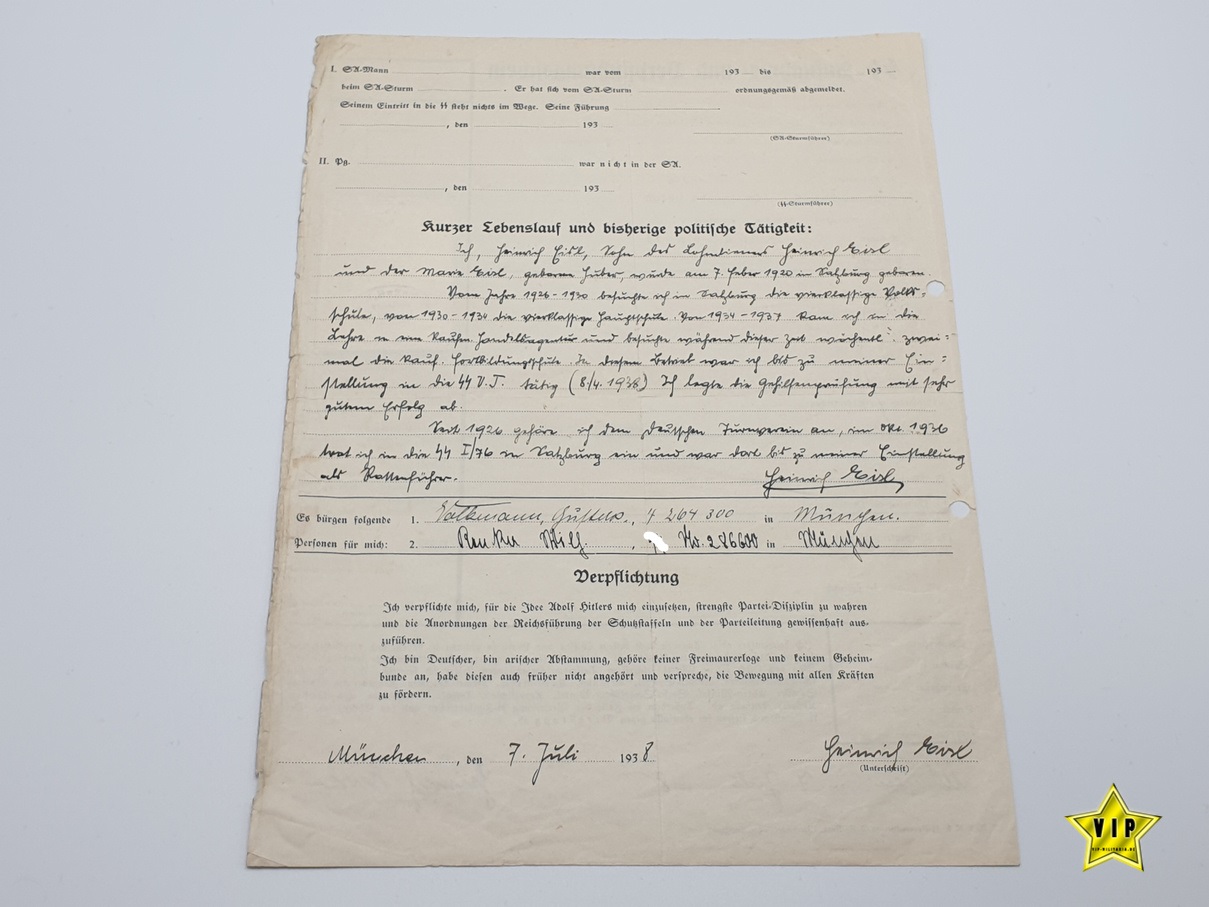 I. SA-Mann war vom 193 bis 193
beim SA-Sturm . Er hat sich vom SA-Sturm ordnungsgemäß abgemeldet.
Seinem Eintritt in die SS steht nichts im Wege. Seine Führung
, den 193
(SA-Sturmführer)
II. Pg. war nicht in der SA.
, den 193
(SS-Sturmführer)
Kurzer Lebenslauf und bisherige politische Tätigkeit:
Ich, Heinrich Eisl, Sohn des Lohndieners Heinrich Eisl
und der Marie Eisl, geborene Huber, wurde am 7. Feber 1920 in Salzburg geboren.
Vom Jahre 1926-1930 besuchte ich in Salzburg die vierklassige Volks-
schule, von 1930-1934 die vierklassige Hauptschule. Von 1934-1937 kam ich in die
Lehre in eine Kaufm. Handelsagentur und besuchte während dieser Zeit wöchentl. zwei-
mal die Kauf. Fortbildungsschule. In diesem Betrieb war ich bis zu meiner Ein-
stellung in die SS V.T. tätig (8./4. 1938) Ich legte die Gehilfenprüfung mit sehr
gutem Erfolg ab.
Seit 1926 gehöre ich dem Deutschen Turnverein an, im Okt. 1936
trat ich in die SS I/76 in Salzburg ein und war dort bis zu meiner Einstellung
als Rottenführer. Heinrich Eisl
Es bürgen folgende 1. in München.
Personen für mich: 2. , Nr. 286600 in München
Verpflichtung
Ich verpflichte mich, für die Idee Adolf Hitlers mich einzusetzen, strengste Partei-Disziplin zu wahren
und die Anordnungen der Reichsführung der Schutzstaffeln und der Parteileitung gewissenhaft aus-
zuführen.
Ich bin Deutscher, bin arischer Abstammung, gehöre keiner Freimaurerloge und keinem Geheim-
bunde an, habe diesen auch früher nicht angehört und verspreche, die Bewegung mit allen Kräften
zu fördern.
München, den 7. Juli 1938 Heinrich Eisl
(Unterschrift)
VIP
VIP-MILITARIA.DE